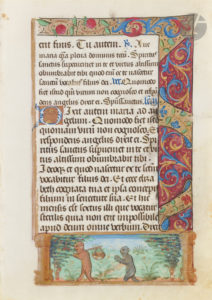 erit finis. Tu autem.
maria gra plena dominus tecum
Spiritus sanctus superveniet in te et virtus altissimi
obumbrabit tibi quod enim ex te nascetur
sanctu vocabit filius dei. Quomodo
fiet istud qm virum non cognosco et respondens
angelus dixit ei. Spiritus sanctus.
Dixit autem maria ad
angelum. Quomodo fiet istud
quoniam virum non cognosco. Et
respondens angelus dixit ei. Spi
ritus sanctus superveniet in te et vir
tus altissimi obumbrabit tibi.
Ideoq et quod nascetur ex te sanctum
vocabitur filius dei. Et ecce eliza
beth cognata tua et ipsa concepit
filium in senectute sua. Et hic
mensis est sextus illi que vocatur
sterilis quia non erit impossibile
apud deum omne verbum. Dixit